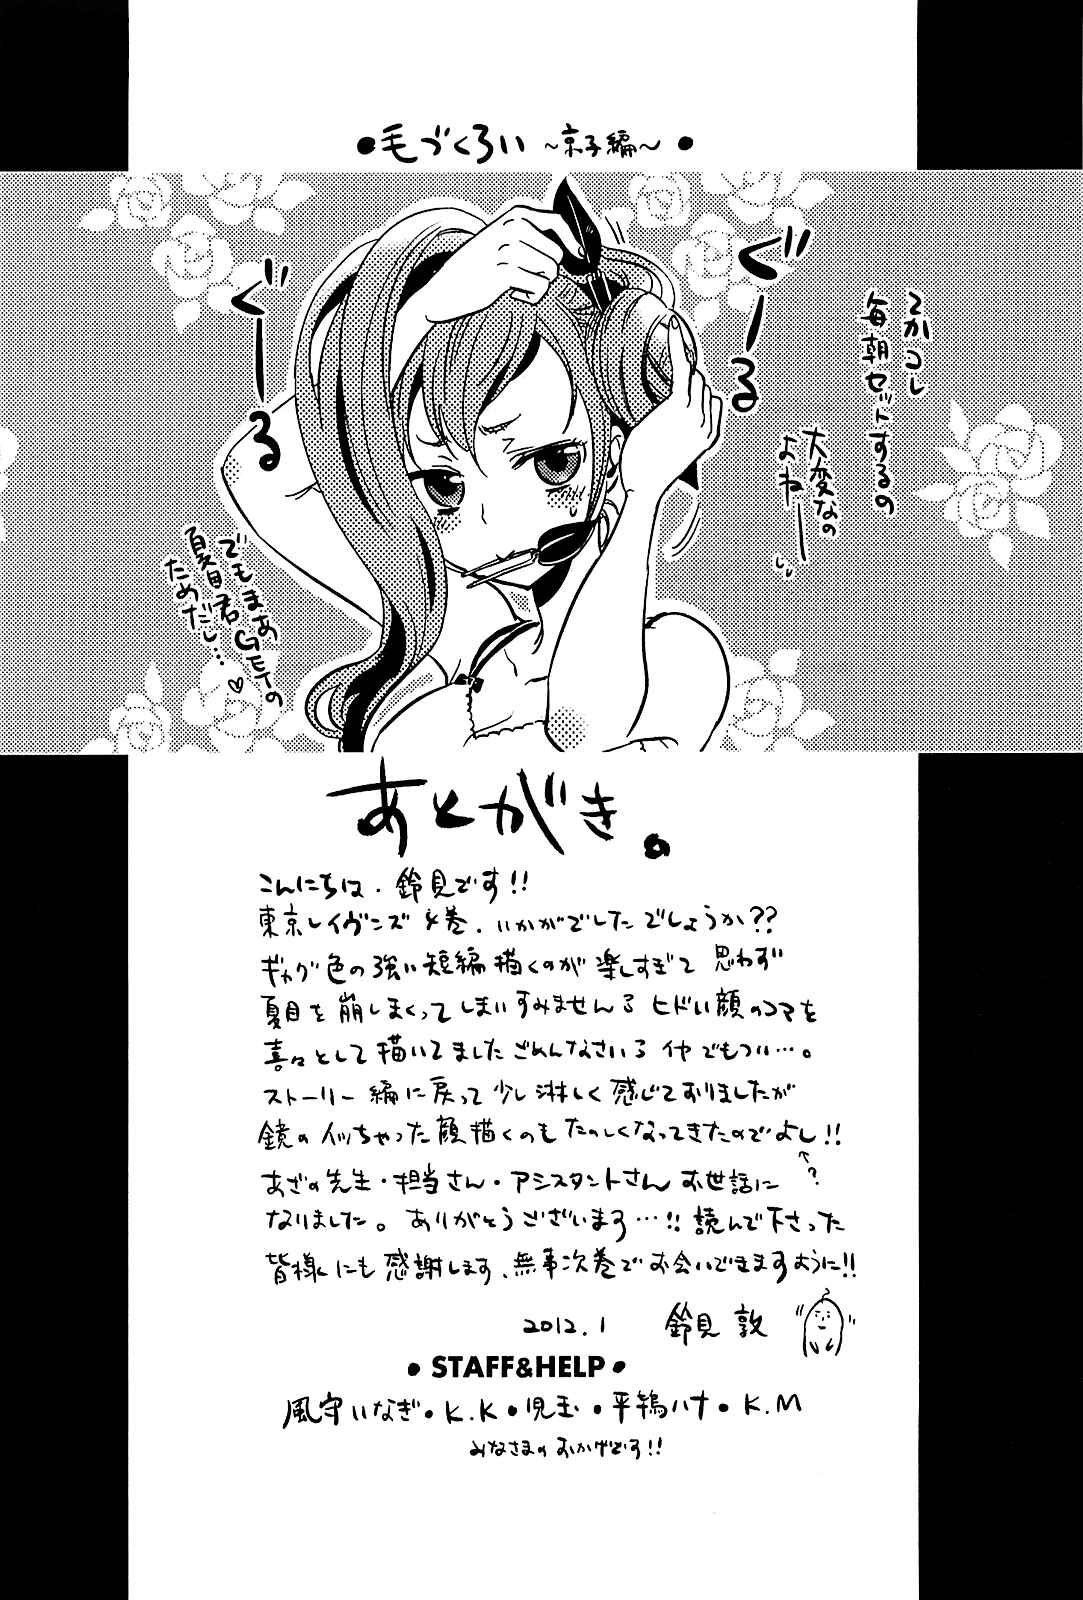 ●毛づくろい ～京子編～●
てかコレ
毎朝セットするの
大変なの
よねー
ぐーる
ぐーる
でもまあ
夏目君GETの
ためだし…♡
あとがき。
こんにちは、鈴見です!!
東京レイヴンズ4巻、いかがでしたでしょうか??
ギャグ色の強い短編描くのが楽しすぎて 思わず
夏目を崩しまくってしまいすみませんろ ヒドい顔のコマを
喜々として描いてましたごめんなさいろ イヤでもつい…。
ストーリー編に戻って少し淋しく感じておりましたが
鏡のイッちゃった顔描くのもたのしくなってきたのでよし!!
↑?
あざの先生・担当さん・アシスタントさん お世話に
なりました。ありがとうございます…!! 読んで下さった
皆様にも感謝します、無事次巻でお会いできますように!!
2012.1 鈴見 敦
● STAFF&HELP ●
風守いなぎ●K.K●児玉●平鴇ハナ●K.M
みなさまのおかげです!!